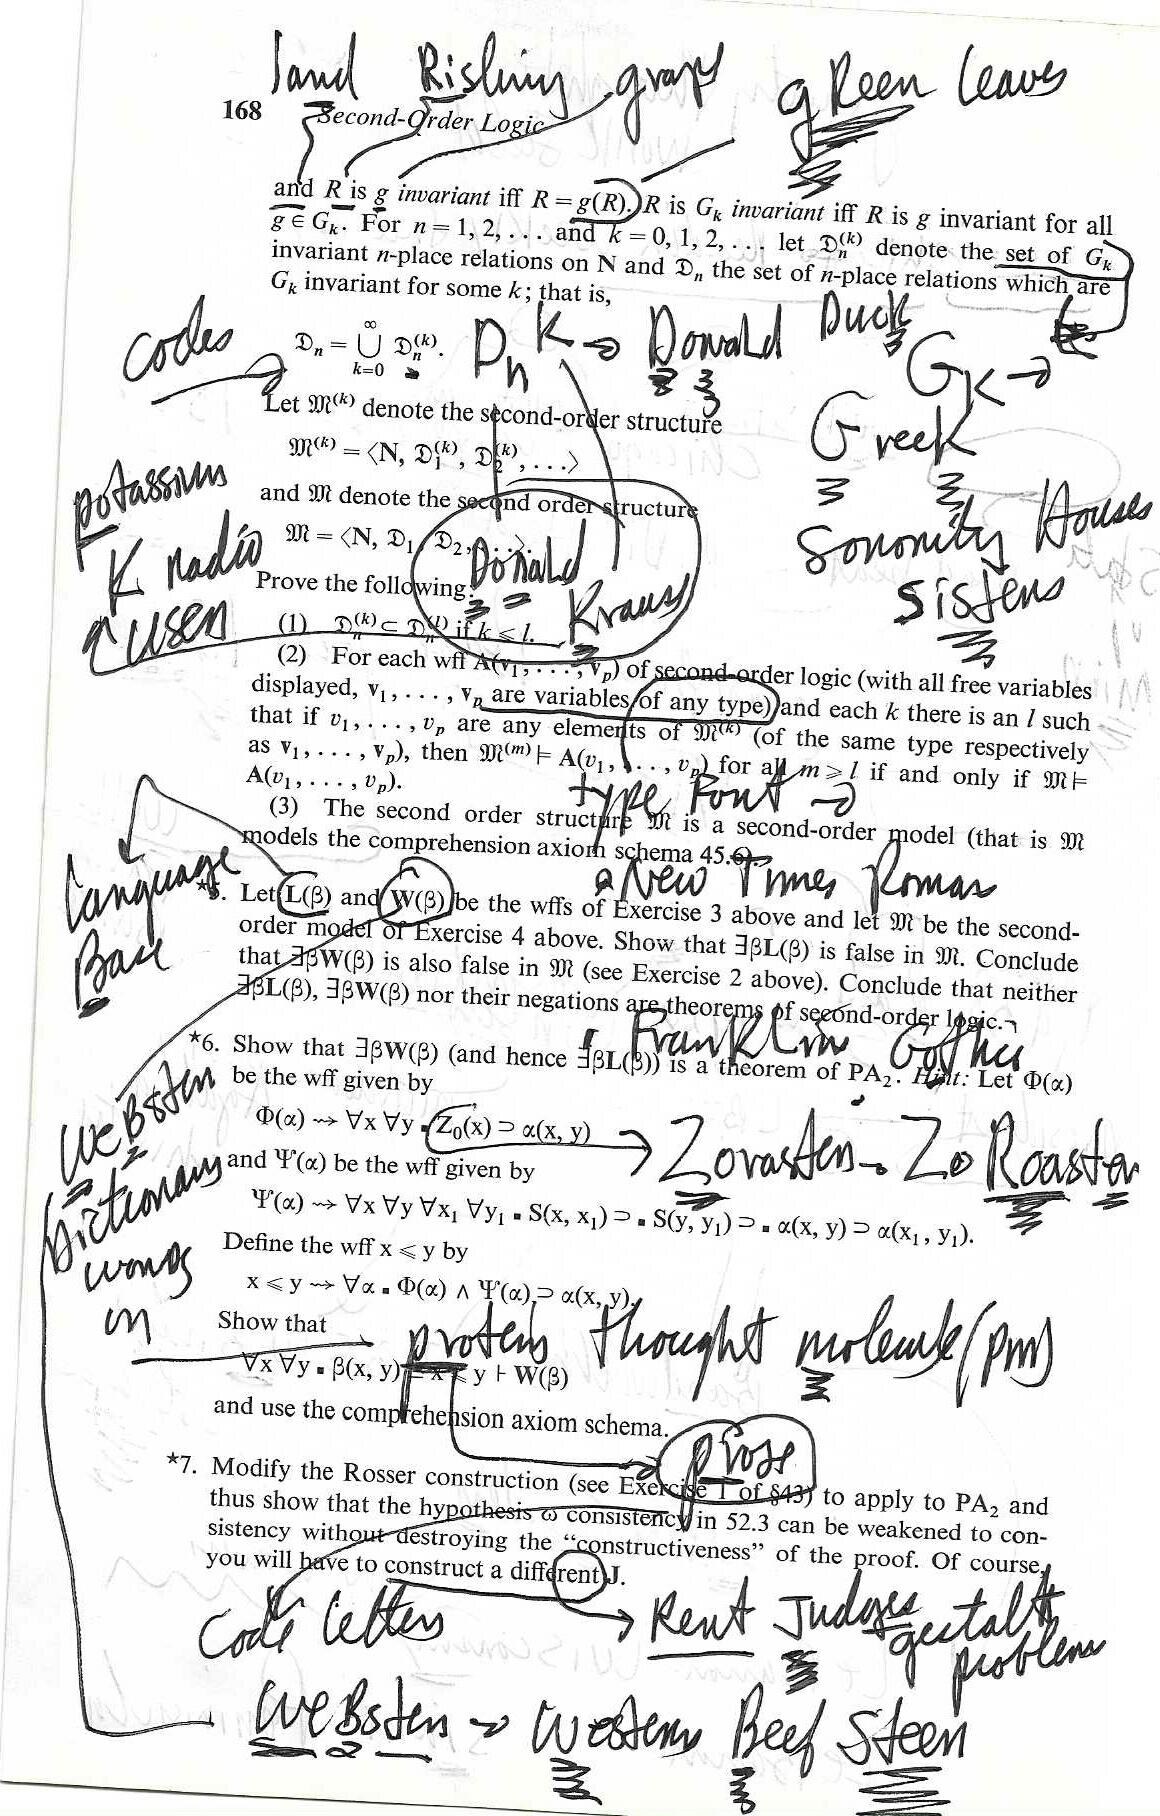 land Rishiny graps gReen leaves
168 Second-Order Logic
and R is g invariant iff R = g(R). R is Gₖ invariant iff R is g invariant for all
g ∈ Gₖ. For n = 1, 2, . . . and k = 0, 1, 2, . . . let 𝔇ₙ⁽ᵏ⁾ denote the set of Gₖ
invariant n-place relations on N and 𝔇ₙ the set of n-place relations which are
Gₖ invariant for some k; that is,
codes
𝔇ₙ = ∪ₖ₌₀^∞ 𝔇ₙ⁽ᵏ⁾.
Dₙ K → Donald Duck
Gₖ →
Let 𝔐⁽ᵏ⁾ denote the second-order structure
Greek
𝔐⁽ᵏ⁾ = ⟨N, 𝔇₁⁽ᵏ⁾, 𝔇₂⁽ᵏ⁾, . . .⟩
potassium
and 𝔐 denote the second order structure
Sonority Houses
K radio
𝔐 = ⟨N, 𝔇₁, 𝔇₂, . . .⟩.
Donald
sisters
Prove the following:
Krauss
user
(1) 𝔇ₙ⁽ᵏ⁾ ⊂ 𝔇ₙ⁽ˡ⁾ if k ⩽ l.
(2) For each wff A(v₁, . . . , vₚ) of second-order logic (with all free variables
displayed, v₁, . . . , vₚ are variables of any type) and each k there is an l such
that if v₁, . . . , vₚ are any elements of 𝔐⁽ᵏ⁾ (of the same type respectively
as v₁, . . . , vₚ), then 𝔐⁽ᵐ⁾ ⊨ A(v₁, . . . , vₚ) for all m ⩾ l if and only if 𝔐 ⊨
A(v₁, . . . , vₚ).
type Font →
(3) The second order structure 𝔐 is a second-order model (that is 𝔐
models the comprehension axiom schema 45.6).
Language
New Times Roman
Base
*5. Let L(β) and W(β) be the wffs of Exercise 3 above and let 𝔐 be the second-
order model of Exercise 4 above. Show that ∃βL(β) is false in 𝔐. Conclude
that ∃βW(β) is also false in 𝔐 (see Exercise 2 above). Conclude that neither
∃βL(β), ∃βW(β) nor their negations are theorems of second-order logic.
Franklin Gothic
*6. Show that ∃βW(β) (and hence ∃βL(β)) is a theorem of PA₂. Hint: Let Φ(α)
be the wff given by
Φ(α) ⇝ ∀x ∀y ▪ Z₀(x) ⊃ α(x, y)
Zoraster. Zo Roaster
WeBster
Dictionary
words
in
and Ψ(α) be the wff given by
Ψ(α) ⇝ ∀x ∀y ∀x₁ ∀y₁ ▪ S(x, x₁) ⊃ ▪ S(y, y₁) ⊃ ▪ α(x, y) ⊃ α(x₁, y₁).
Define the wff x ⩽ y by
x ⩽ y ⇝ ∀α ▪ Φ(α) ∧ Ψ(α) ⊃ α(x, y).
Show that
protein thought molecule (pm)
∀x ∀y ▪ β(x, y) ≡ x ⩽ y ⊢ W(β)
and use the comprehension axiom schema.
pross
*7. Modify the Rosser construction (see Exercise 1 of §43) to apply to PA₂ and
thus show that the hypothesis ω consistency in 52.3 can be weakened to con-
sistency without destroying the “constructiveness” of the proof. Of course,
you will have to construct a different J.
Code letters
Rent Judges gestalt
problem
WeBster → Western Beef Steer